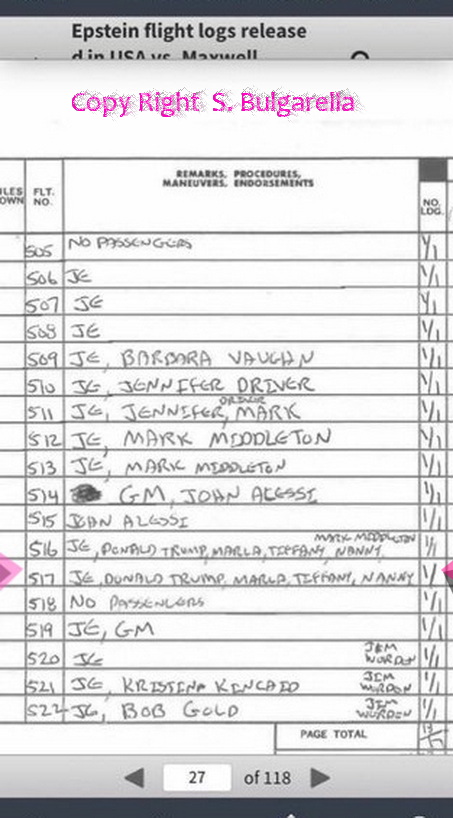 Epstein flight logs release
d in USA vs. Maxwell
Copy Right S. Bulgarella
REMARKS, PROCEDURES,
MANEUVERS, ENDORSEMENTS
ILES
OWN
FLT.
NO.
NO.
LDG.
505 NO PASSENGERS 1/1
506 JE 1/1
507 JE 1/1
508 JE 1/1
509 JE, BARBARA VAUGHN 1/1
510 JE, JENNIFER DRIVER 1/1
DRIVER
511 JE, JENNIFER, MARK 1/1
512 JE, MARK MIDDLETON 1/1
513 JE, MARK MIDDLETON 1/1
514 GM, JOHN ALESSI 1/1
515 JOHN ALESSI 1/1
MARK MIDDLETON
516 JE, DONALD TRUMP, MARLA, TIFFANY, NANNY, 1/1
517 JE, DONALD TRUMP, MARLA, TIFFANY, NANNY 1/
518 NO PASSENGERS 1/1
519 JE, GM 1/1
520 JE JIM 1/1
WURDEN
521 JE, KRISTINA KINCAID JIM 1/1
WURDEN
522 JE, BOB GOLD JIM 1/1
WURDEN
PAGE TOTAL
27 of 118